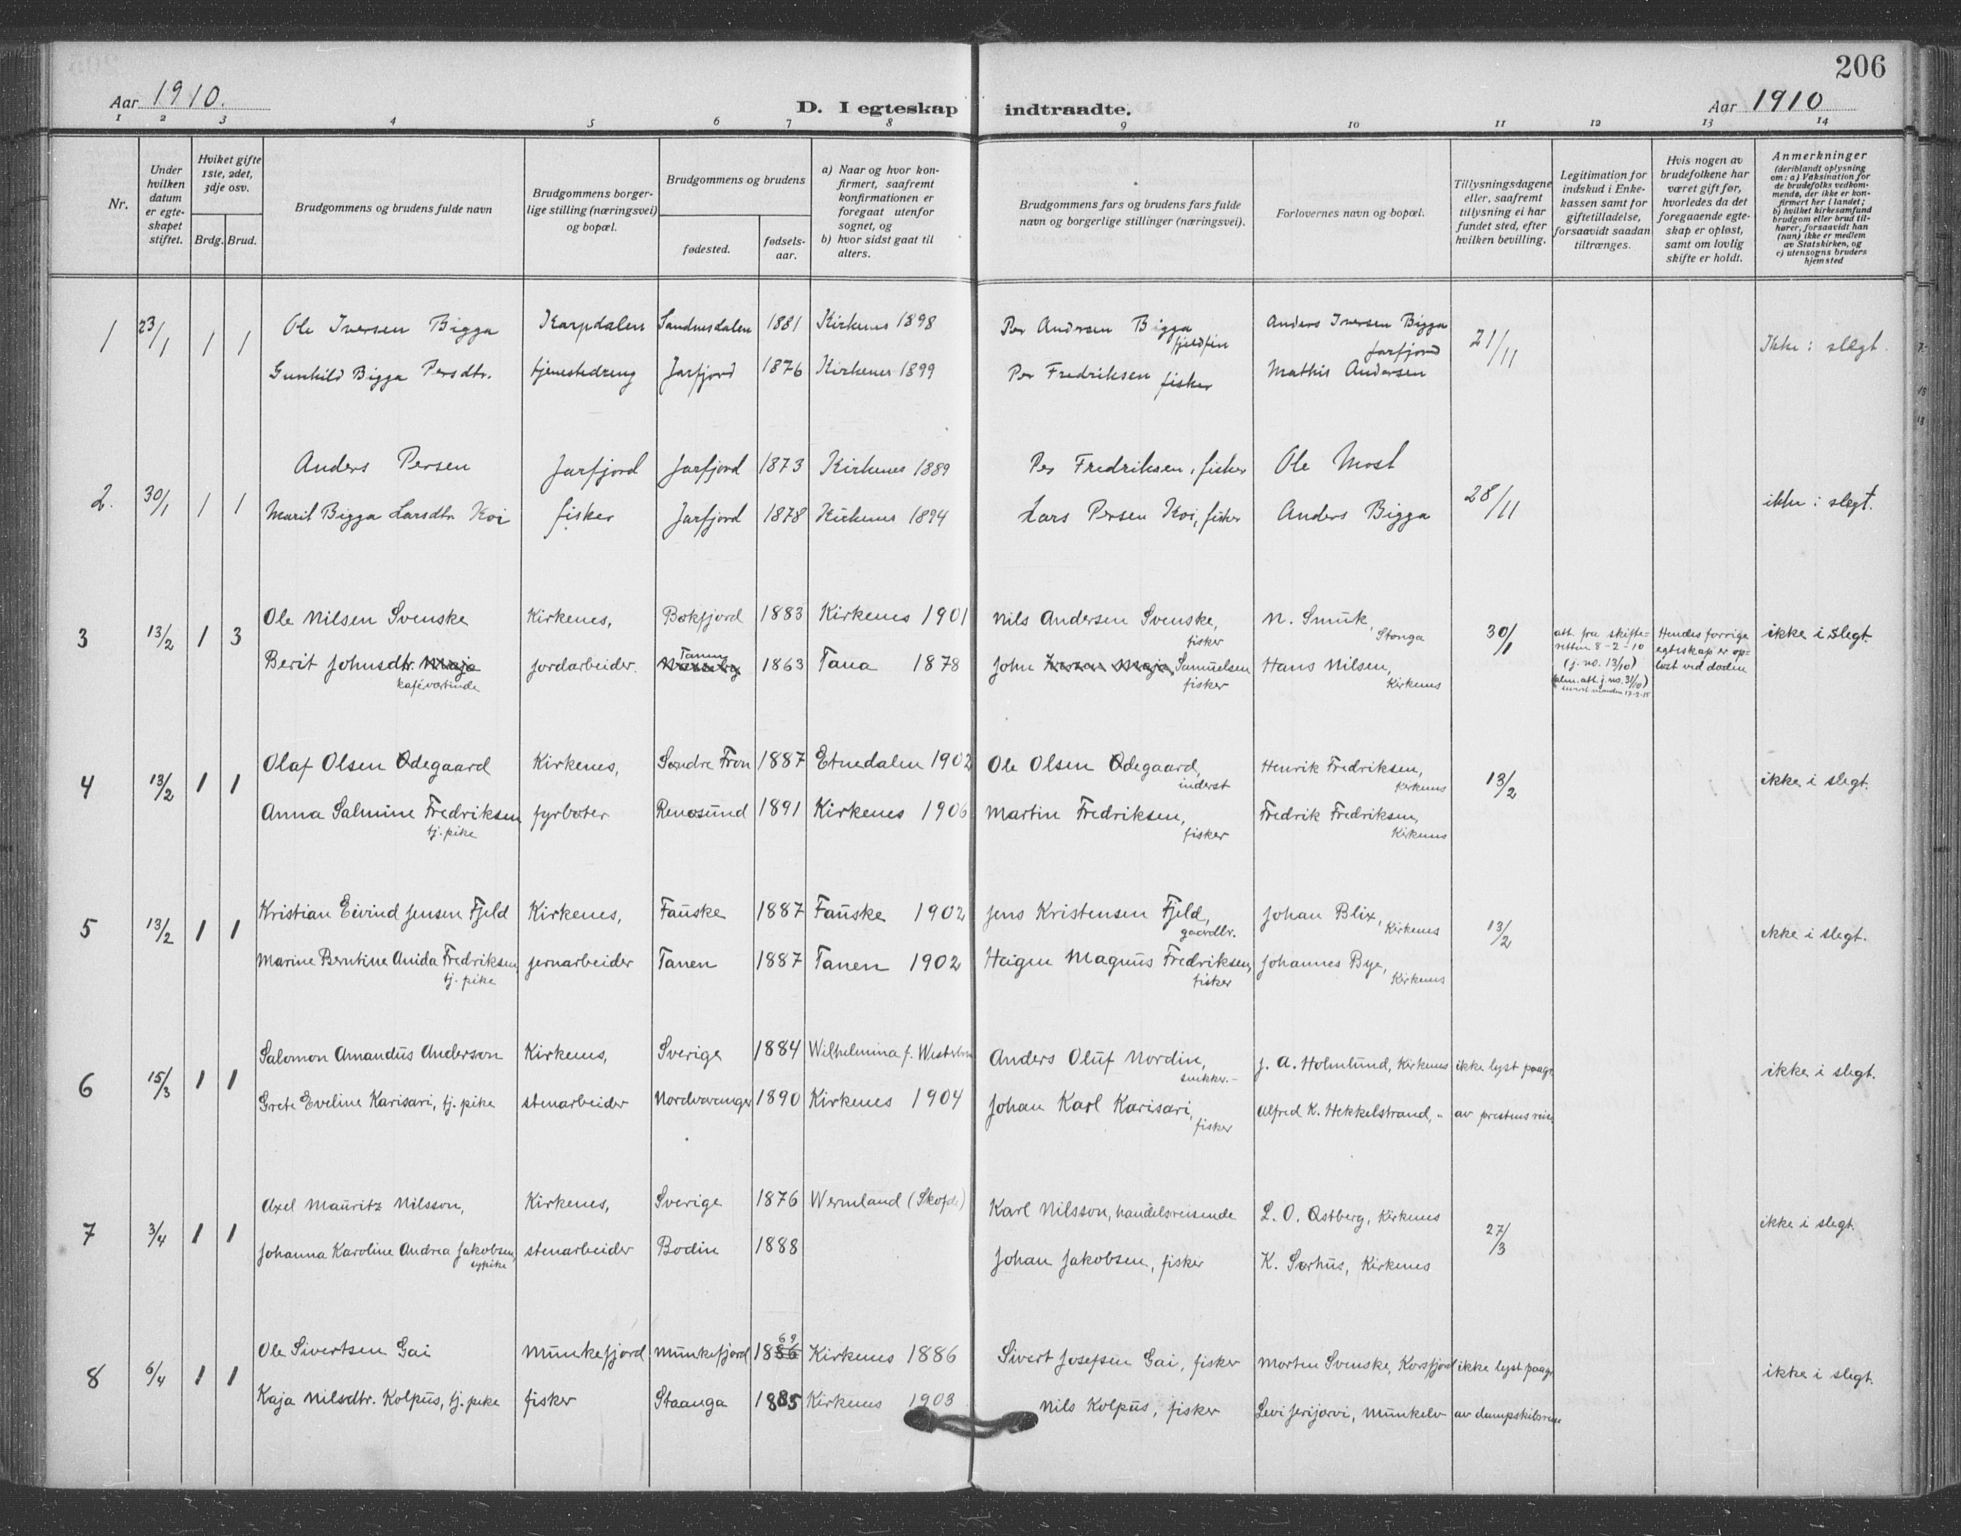 206
Aar 1910.
D. I egteskap indtraadte.
Aar 1910
1 2 3 4 5 6 7 8 9 10 11 12 13 14
Nr.
Under hvilken datum er egteskapet stiftet.
Hviket gifte 1ste, 2det, 3dje osv.
Brdg. Brud.
Brudgommens og brudens fulde navn
Brudgommens borgerlige stilling (næringsvei) og bopæl.
Brudgommens og brudens
fødested.
fødselsaar.
a) Naar og hvor konfirmert, saafremt konfirmationen er foregaat utenfor sognet, og
b) hvor sidst gaat til alters.
Brudgommens fars og brudens fars fulde navn og borgerlige stillinger (næringsvei).
Forlovernes navn og bopæl.
Tillysningsdagene eller, saafremt tillysning ei har fundet sted, efter hvilken bevilling.
Legitimation for indskud i Enkekassen samt for giftetilladelse, forsaavidt saadan tiltrænges.
Hvis nogen av brudefolkene har været gift før, hvorledes da det foregaaende egteskap er opløst, samt om lovlig skifte er holdt.
Anmerkninger (deriblandt oplysning om: a) Vaksination for de brudefolks vedkommende, der ikke er konfirmert her i landet; b) hvilket kirkesamfund brudgom eller brud tilhører, forsaavidt han (hun) ikke er medlem av Statskirken, og c) utensogns bruders hjemsted
1 23/1 1 1 Ole Iversen Bigga Karpdalen Sandnesdalen 1881 Kirkenes 1898 Per Andersen Bigga fjeldfin Anders Iversen Bigga Jarfjord 21/11 Ikke i slegt.
Gunhild Bigga Persdtr. tjenestedreng Jarfjord 1876 Kirkenes 1899 Per Fredriksen fisker Mathis Andersen
2. 30/1 1 1 Anders Persen Jarfjord Jarfjord 1873 Kirkenes 1889 Per Fredriksen, fisker Ole Most 28/11 ikke i slegt.
Marit Bigga Larsdtr. Koi fisker Jarfjord 1878 Kirkenes 1894 Lars Persen Koi, fisker Anders Bigga
3 13/2 1 3 Ole Nilsen Svenske Kirkenes, Bøkfjord 1883 Kirkenes 1901 Nils Andersen Svenske, fisker N. Smuk, Stonga 30/1 att. fra skifteretten 8-2-10 (j. no. 13/10) Hendes forrige egteskap er opløst ved døden ikke i slegt.
Berit Johnsdtr. Maja kafévartinde jordarbeider. Tanen 1863 Tana 1878 John Samuelsen fisker Hans Nilsen, Kirkenes
4 13/2 1 1 Olaf Olsen Ødegaard Kirkenes, Søndre Fron 1887 Etnedalen 1902 Ole Olsen Ødegaard, inderst Henrik Fredriksen, Kirkenes 13/2 ikke i slegt.
Anna Salmine Fredriksen tj. pike fyrbøter Renøsund 1891 Kirkenes 1906 Martin Fredriksen, fisker Fredrik Fredriksen, Kirkenes
5 13/2 1 1 Kristian Eivind Jensen Fjeld Kirkenes, Fauske 1887 Fauske 1902 Jens Kristensen Fjeld, gaardbr. Johan Blix, Kirkenes 13/2 ikke i slegt.
Marine Berntine Anida Fredriksen tj. pike jernarbeider Tanen 1887 Tanen 1902 Haigen Magnus Fredriksen, fisker Johannes Bye, Kirkenes
6 15/3 1 1 Salomon Amandus Anderson Kirkenes, Sverige 1884 Wilhelmina f. Anders Oluf Nordin, snikker.- J. A. Holmlund, Kirkenes ikke lyst paagr. ikke i slegt.
Grete Eveline Karisari, tj. pike stenarbeider Nordvaranger 1890 Kirkenes 1904 Johan Karl Karisari, fisker Alfred K. Hekkelstrand, " av prestens reise
7 3/4 1 1 Axel Mauritz Nilsson, Kirkenes, Sverige 1876 Wermland (Skofde) Karl Nilsson, handelsreisende L. O. Østberg, Kirkenes 27/3 ikke i slegt.
Johanna Karoline Andrea Jakobsen, sypike stenarbeider Bodin 1888 Johan Jakobsen, fisker K. Sørhus, Kirkenes
8 6/4 1 1 Ole Sivertsen Gai Munkefjord Munkefjord 1869 Kirkenes 1886 Sivert Josefsen Gai, fisker Morten Svenske, Korsfjord ikke lyst paagr. ikke i slegt.
Kaja Nilsdtr. Kolpus, tj. pike fisker Staanga 1885 Kirkenes 1903 Nils Kolpus, fisker Levi Jerijarvi, Munkelv av dampskibsreise